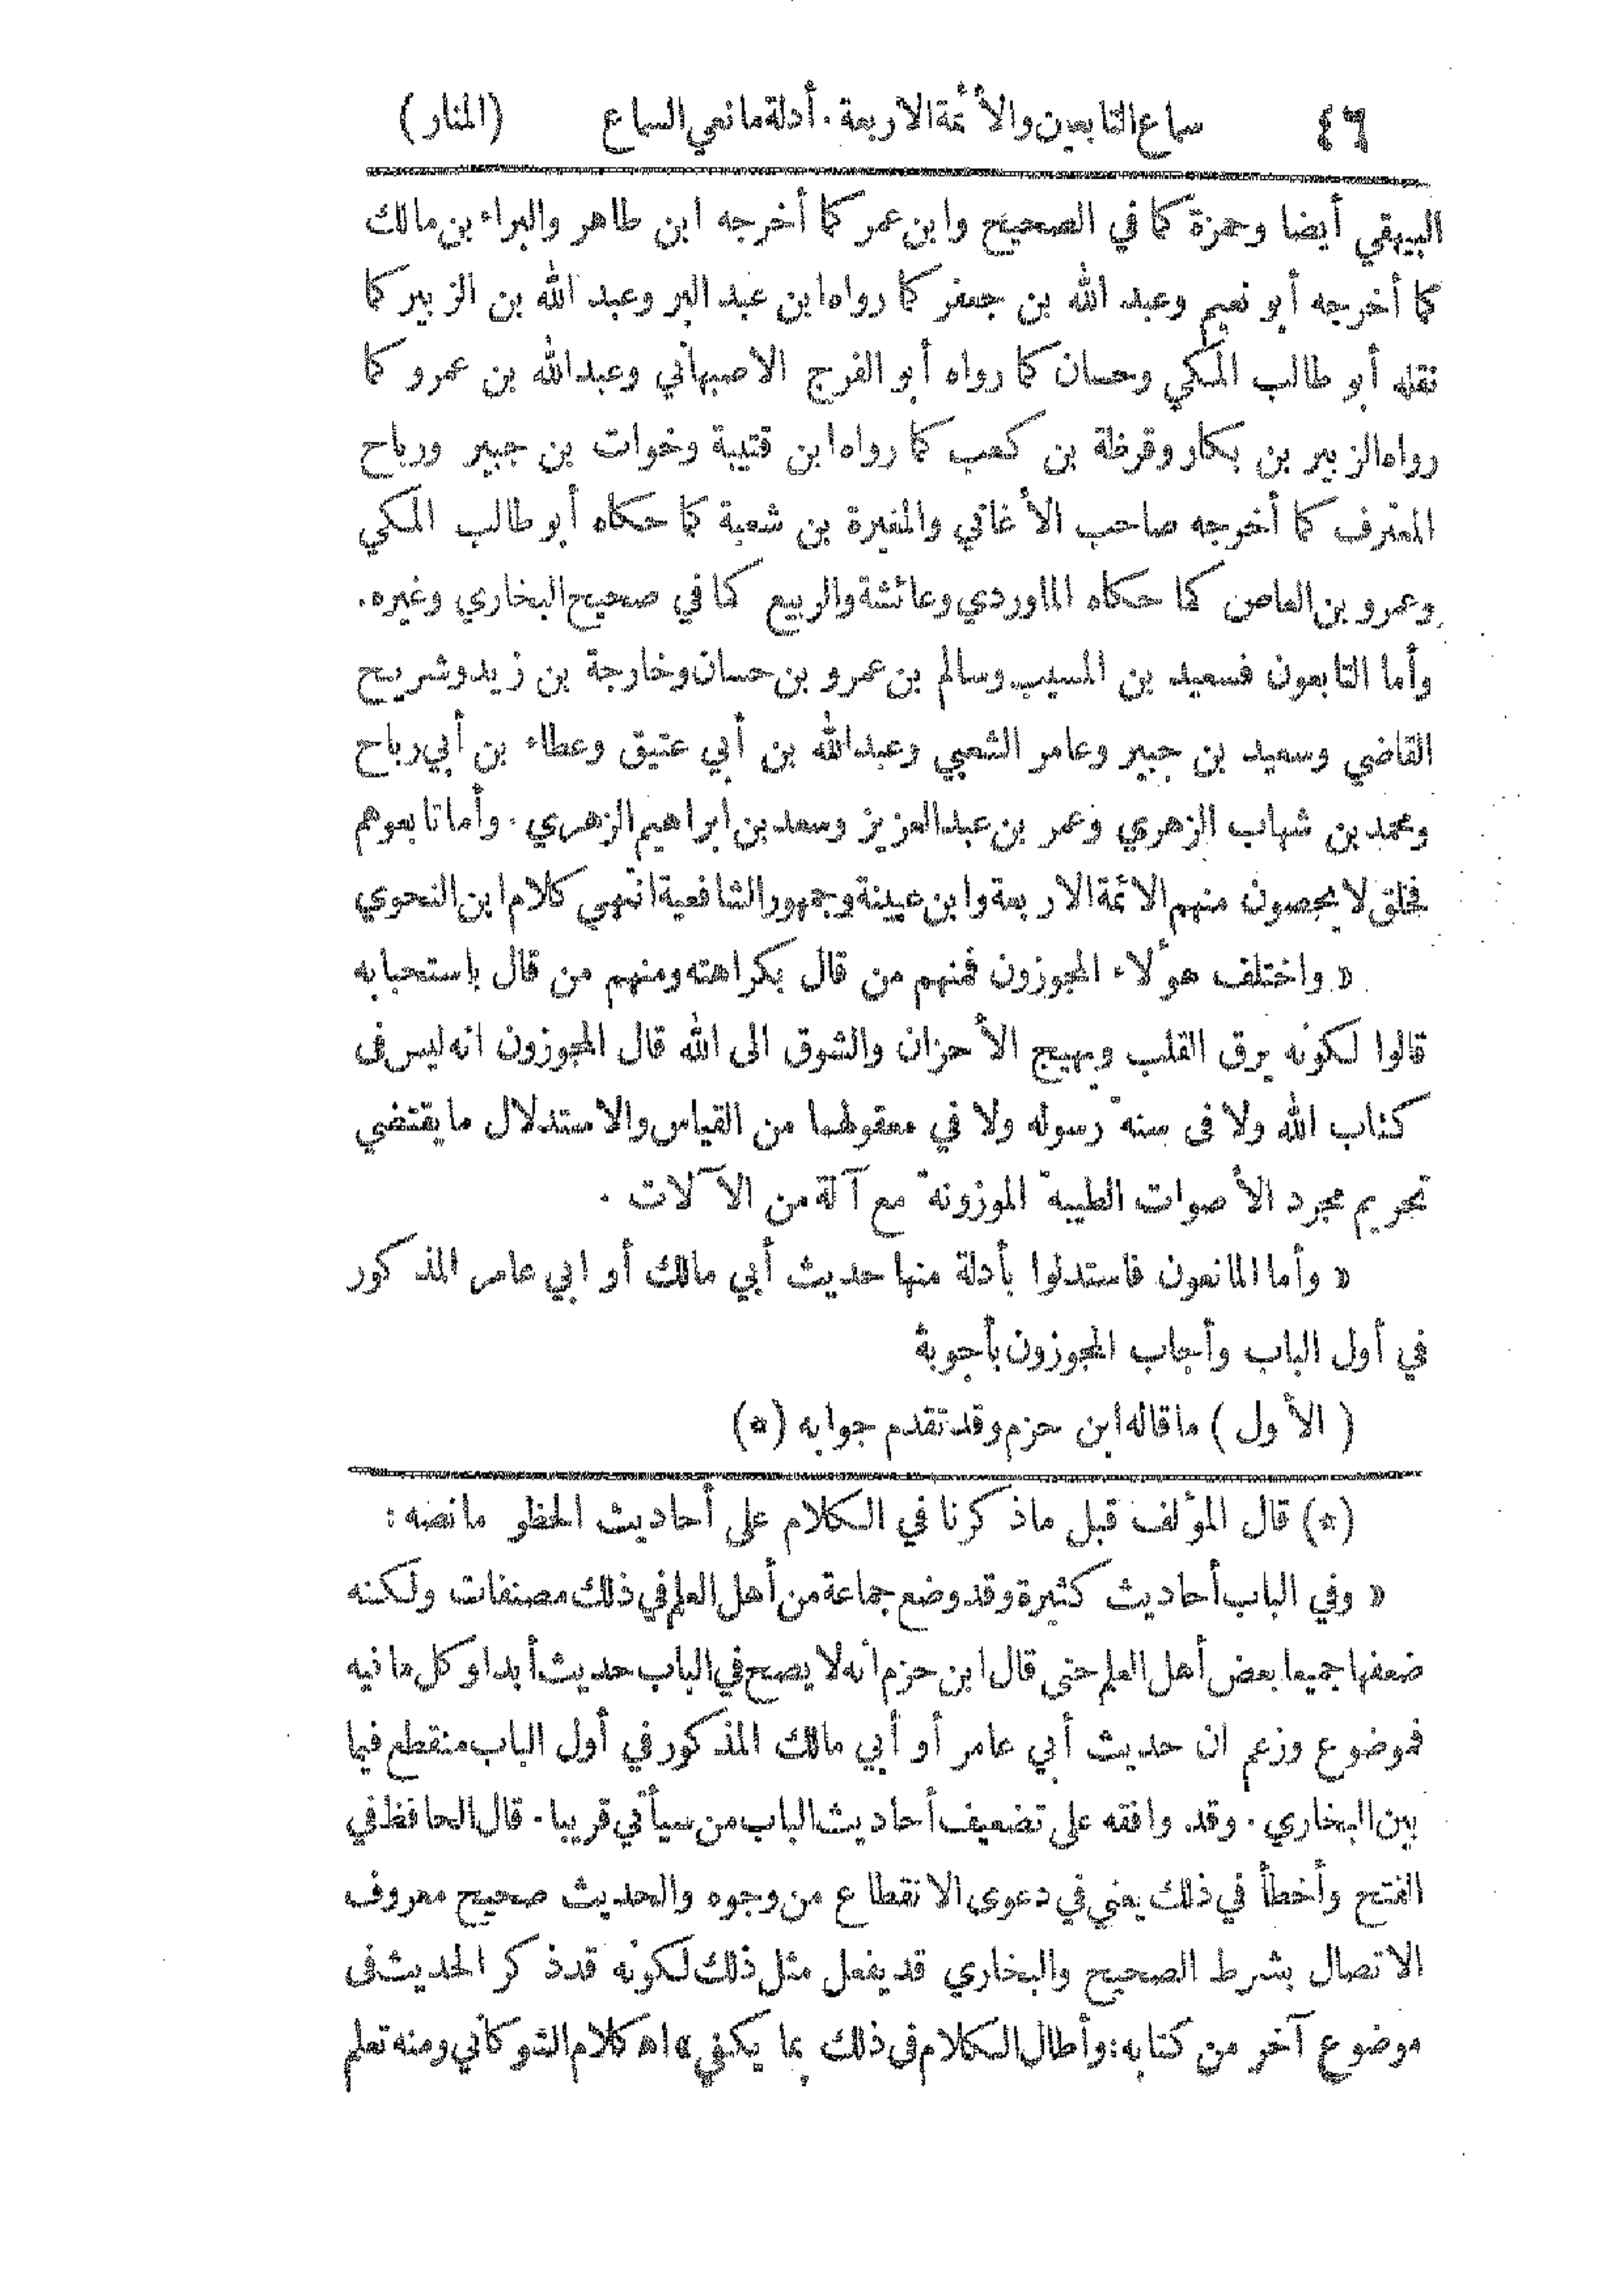 ٤٦ سماع التابعين والأئمة الاربعة . أدلة مانعي السماع (المنار)
البيهقي أيضا وحمزة كما في الصحيح وابن عمر كما أخرجه ابن طاهر والبراء بن مالك
كما أخرجه أبو نعيم وعبد الله بن جعفر كما رواه ابن عبد البر وعبد الله بن الزبير كما
نقله أبو طالب المكي وحسان كما رواه أبو الفرج الاصبهاني وعبدالله بن عمرو كما
رواه الزبير بن بكار وقرظة بن كعب كما رواه ابن قتيبة وخوات بن جبير ورباح
المعترف كما أخرجه صاحب الأغاني والمغيرة بن شعبة كما حكاه أبو طالب المكي
وعمرو بن العاص كما حكاه الماوردي وعائشة والربيع كما في صحيح البخاري وغيره .
وأما التابعون فسعيد بن المسيب وسالم بن عمرو بن حسان وخارجة بن زيد وشريح
القاضي وسعيد بن جبير وعامر الشعبي وعبدالله بن أبي عتيق وعطاء بن أبي رباح
ومحمد بن شهاب الزهري وعمر بن عبدالعزيز وسعد بن ابراهيم الزهري . وأما تابعوهم
فخلق لا يحصون منهم الائمة الاربعة وابن عيينة وجمهور الشافعية انتهى كلام ابن النحوي
« واختلف هؤلاء المجوزون فمنهم من قال بكراهته ومنهم من قال باستحبابه
قالوا لكونه يرق القلب ويهيج الأحزان والشوق الى الله قال المجوزون انه ليس فى
كتاب الله ولا فى سنة رسوله ولا في معقولهما من القياس والاستدلال ما يقتضي
تحريم مجرد الأصوات الطيبة الموزونة مع آلة من الآلات .
« وأما المانعون فاستدلوا بأدلة منها حديث أبي مالك أو ابي عامر المذكور
في أول الباب وأجاب المجوزون بأجوبة
( الأول ) ما قاله ابن حزم وقد تقدم جوابه (*)
(*) قال المؤلف قبل ماذكرنا في الكلام على أحاديث الحظر مانصه :
« وفي الباب أحاديث كثيرة وقد وضع جماعة من أهل العلم في ذلك مصنفات ولكنه
ضعفها جميعا بعض أهل العلم حتى قال ابن حزم انه لا يصح في الباب حديث أبدا وكل ما فيه
فموضوع وزعم ان حديث أبي عامر أو أبي مالك المذكور في أول الباب منقطع فيما
بين البخاري . وقد وافقه على تضعيف أحاديث الباب من سيأتي قريبا . قال الحافظ في
الفتح وأخطأ في ذلك يعني في دعوى الانقطاع من وجوه والحديث صحيح معروف
الاتصال بشرط الصحيح والبخاري قد يفعل مثل ذلك لكونه قد ذكر الحديث فى
موضوع آخر من كتابه : وأطال الكلام فى ذلك بما يكفي » اه كلام الشوكاني ومنه تعلم